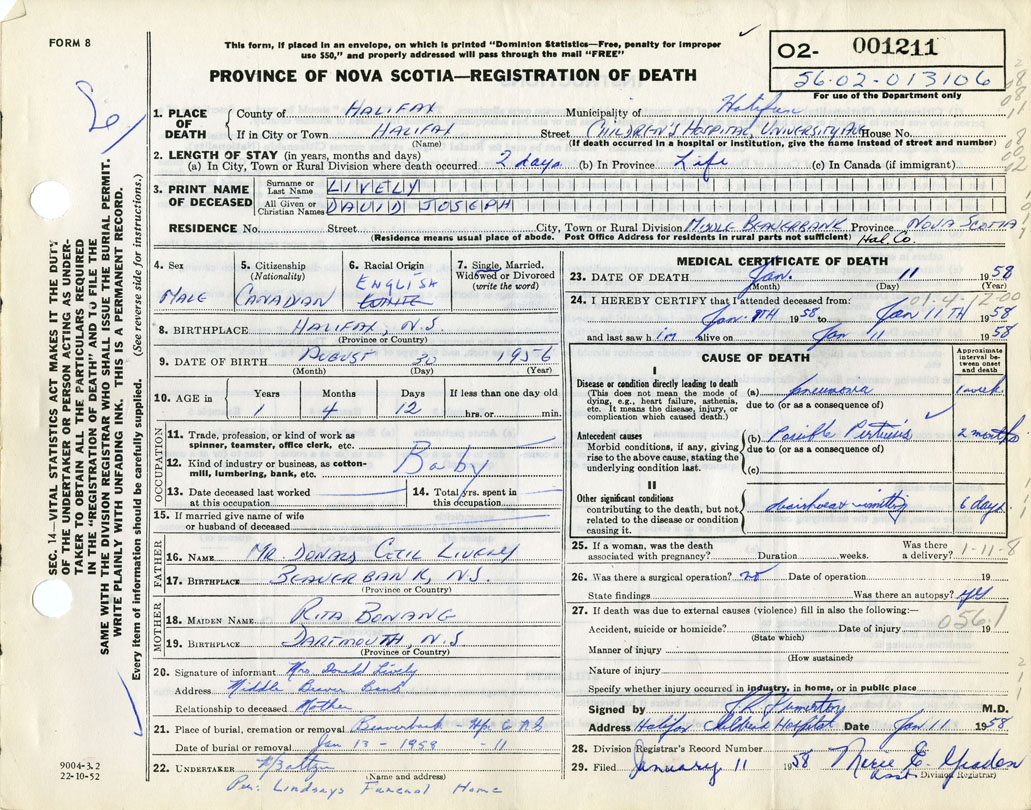 FORM 8
This form, if placed in an envelope, on which is printed "Dominion Statistics—Free, penalty for improper
use $50," and properly addressed will pass through the mail "FREE"
PROVINCE OF NOVA SCOTIA—REGISTRATION OF DEATH
O2- 001211
56-02-013106
For use of the Department only
SEC. 14—VITAL STATISTICS ACT MAKES IT THE DUTY
OF THE UNDERTAKER OR PERSON ACTING AS UNDER-
TAKER TO OBTAIN ALL THE PARTICULARS REQUIRED
IN THE "REGISTRATION OF DEATH" AND TO FILE THE
SAME WITH THE DIVISION REGISTRAR WHO SHALL ISSUE THE BURIAL PERMIT.
WRITE PLAINLY WITH UNFADING INK. THIS IS A PERMANENT RECORD.
Every item of information should be carefully supplied. (See reverse side for instructions.)
1. PLACE OF DEATH
County of HALIFAX Municipality of Halifax
If in City or Town HALIFAX Street CHILDREN'S HOSPITAL, UNIVERSITY AVE House No.
(Name) (If death occurred in a hospital or institution, give the name instead of street and number)
2. LENGTH OF STAY (in years, months and days)
(a) In City, Town or Rural Division where death occurred 2 days (b) In Province Life (c) In Canada (if immigrant)
3. PRINT NAME OF DECEASED
Surname or Last Name LIVELY
All Given or Christian Names DAVID JOSEPH
RESIDENCE No. Street City, Town or Rural Division MIDDLE BEAVERBANK Province NOVA SCOTIA
(Residence means usual place of abode. Post Office Address for residents in rural parts not sufficient) Hal Co.
4. Sex
MALE
5. Citizenship
(Nationality)
CANADIAN
6. Racial Origin
ENGLISH
WHITE
7. Single, Married,
Widowed or Divorced
(write the word)
8. BIRTHPLACE HALIFAX, N.S.
(Province or Country)
9. DATE OF BIRTH AUGUST 30 1956
(Month) (Day) (Year)
10. AGE in Years Months Days If less than one day old
1 4 12 hrs. or min.
OCCUPATION
11. Trade, profession, or kind of work as
spinner, teamster, office clerk, etc.
12. Kind of industry or business, as cotton-
mill, lumbering, bank, etc. Baby
13. Date deceased last worked
at this occupation
14. Total yrs. spent in
this occupation
15. If married give name of wife
or husband of deceased
FATHER
16. NAME MR. DONALD CECIL LIVELY
17. BIRTHPLACE BEAVERBANK, N.S.
(Province or Country)
MOTHER
18. MAIDEN NAME RITA BONANG
19. BIRTHPLACE DARTMOUTH, N.S
(Province or Country)
20. Signature of informant Mrs Donald Lively
Address Middle Beaver Bank
Relationship to deceased Mother
21. Place of burial, cremation or removal Beaverbank - Hfx Co N.S
Date of burial or removal Jan 13 - 1958 - 11
22. UNDERTAKER
(Name and address)
Per: Lindsays Funeral Home
9004-3.2
22-10-52
MEDICAL CERTIFICATE OF DEATH
23. DATE OF DEATH Jan. 11 1958
(Month) (Day) (Year)
24. I HEREBY CERTIFY that I attended deceased from: 01-4-12-00
Jan. 9TH 1958 to Jan 11TH 1958
and last saw him alive on Jan 11 1958
CAUSE OF DEATH
Approximate
interval be-
tween onset
and death
I
Disease or condition directly leading to death
(This does not mean the mode of
dying, e.g., heart failure, asthenia,
etc. It means the disease, injury, or
complication which caused death.)
(a) pneumonia 1 week
due to (or as a consequence of)
Antecedent causes
Morbid conditions, if any, giving
rise to the above cause, stating the
underlying condition last.
(b) Possible Pertussis 2 months
due to (or as a consequence of)
(c)
II
Other significant conditions
contributing to the death, but not
related to the disease or condition
causing it.
diarrhoea & vomiting 6 days
25. If a woman, was the death
associated with pregnancy? Duration weeks. Was there
a delivery? 1-11-8
26. Was there a surgical operation? no Date of operation 19
State findings Was there an autopsy? yes
27. If death was due to external causes (violence) fill in also the following:—
Accident, suicide or homicide? Date of injury 19
056.1
(State which)
Manner of injury
(How sustained)
Nature of injury
Specify whether injury occurred in industry, in home, or in public place
Signed by M.D.
Address Halifax Children's Hospital Date Jan 11 1958
28. Division Registrar's Record Number
29. Filed January 11 1958
Asst Division Registrar)